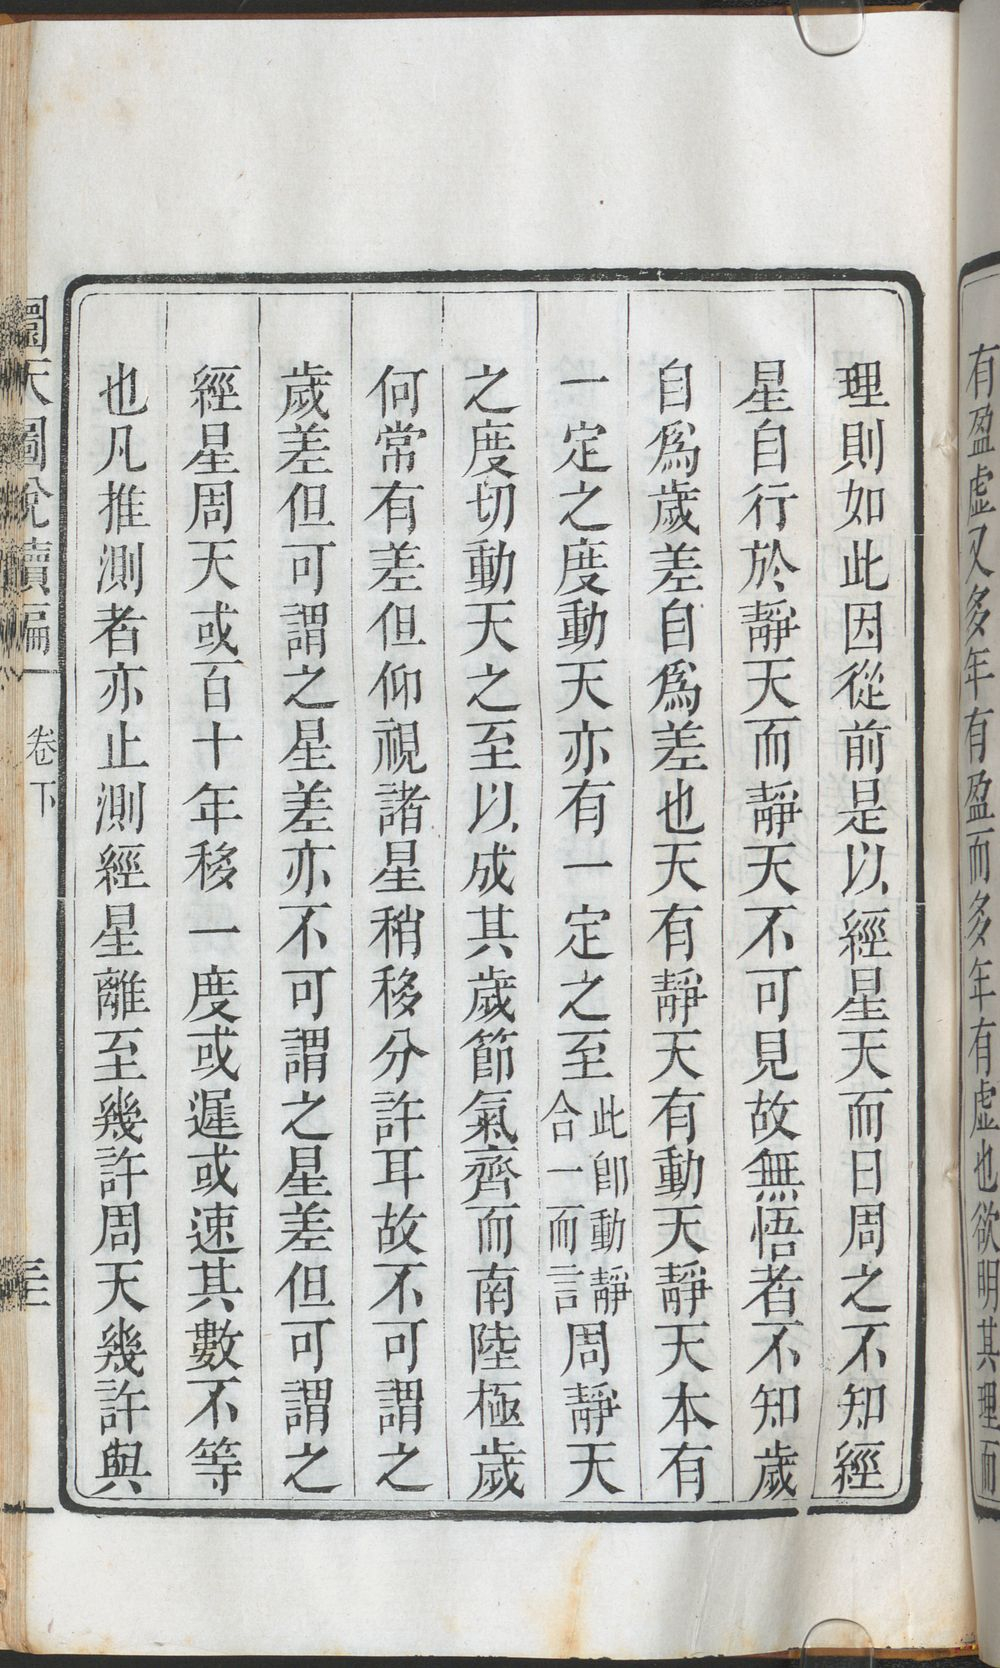 有盈虛又多年有盈而多年有虛也欲明其理而
理則如此因從前是以經星天而日周之不知經
星自行於靜天而靜天不可見故無悟者不知歲
自爲歲差自爲差也天有靜天有動天靜天本有
一定之度動天亦有一定之至此卽動靜合一而言周靜天
之度切動天之至以成其歲節氣齊而南陸極歲
何常有差但仰視諸星稍移分許耳故不可謂之
歲差但可謂之星差亦不可謂之星差但可謂之
經星周天或百十年移一度或遲或速其數不等
也凡推測者亦止測經星離至幾許周天幾許與
圜天圖說續編
卷下